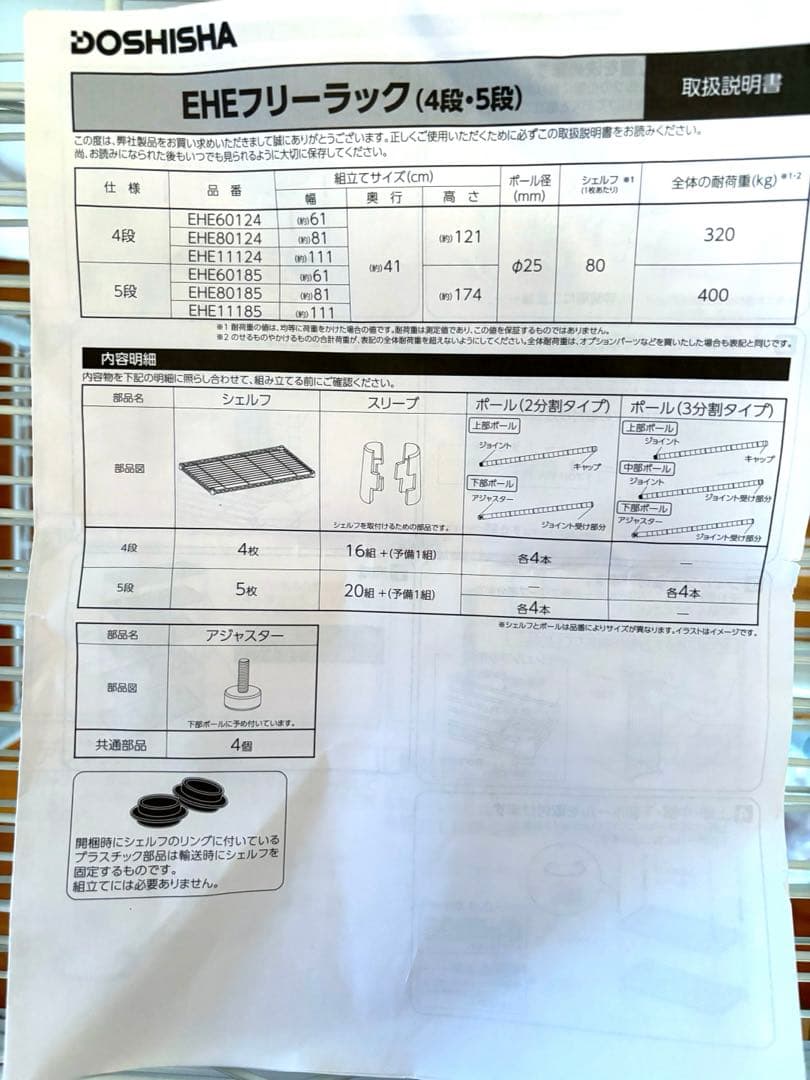 DOSHISHA
EHEフリーラック(4段・5段)
取扱説明書
この度は、弊社製品をお買い求めいただきまして誠にありがとうございます。正しくご使用いただくために必ずこの取扱説明書をお読みください。
尚、お読みになられた後もいつでも見られるように大切に保存してください。
仕様 品番 組立てサイズ(cm) ポール径(mm) シェルフ※1(1枚あたり) 全体の耐荷重(kg)※1・2
幅 奥行 高さ
4段 EHE60124 (約)61 (約)41 (約)121 φ25 80 320
EHE80124 (約)81
EHE11124 (約)111
5段 EHE60185 (約)61 (約)174 400
EHE80185 (約)81
EHE11185 (約)111
※1 耐荷重の値は、均等に荷重をかけた場合の値です。耐荷重は測定値であり、この値を保証するものではありません。
※2 のせるものやかけるものの合計荷重が、表記の全体耐荷重を超えないようにしてください。全体耐荷重は、オプションパーツなどを買いたした場合も表記と同じです。
内容明細
内容物を下記の明細に照らし合わせて、組み立てる前にご確認ください。
部品名 シェルフ スリーブ ポール(2分割タイプ) ポール(3分割タイプ)
部品図
シェルフを取付けるための部品です。
上部ポール
ジョイント
キャップ
下部ポール
アジャスター
ジョイント受け部分
上部ポール
ジョイント
キャップ
中部ポール
ジョイント
ジョイント受け部分
下部ポール
アジャスター
ジョイント受け部分
4段 4枚 16組+(予備1組) 各4本 —
5段 5枚 20組+(予備1組) — 各4本
各4本 —
※シェルフとポールは品番によりサイズが異なります。イラストはイメージです。
部品名 アジャスター
部品図
下部ポールに予め付いています。
共通部品 4個
開梱時にシェルフのリングに付いている
プラスチック部品は輸送時にシェルフを
固定するものです。
組立てには必要ありません。